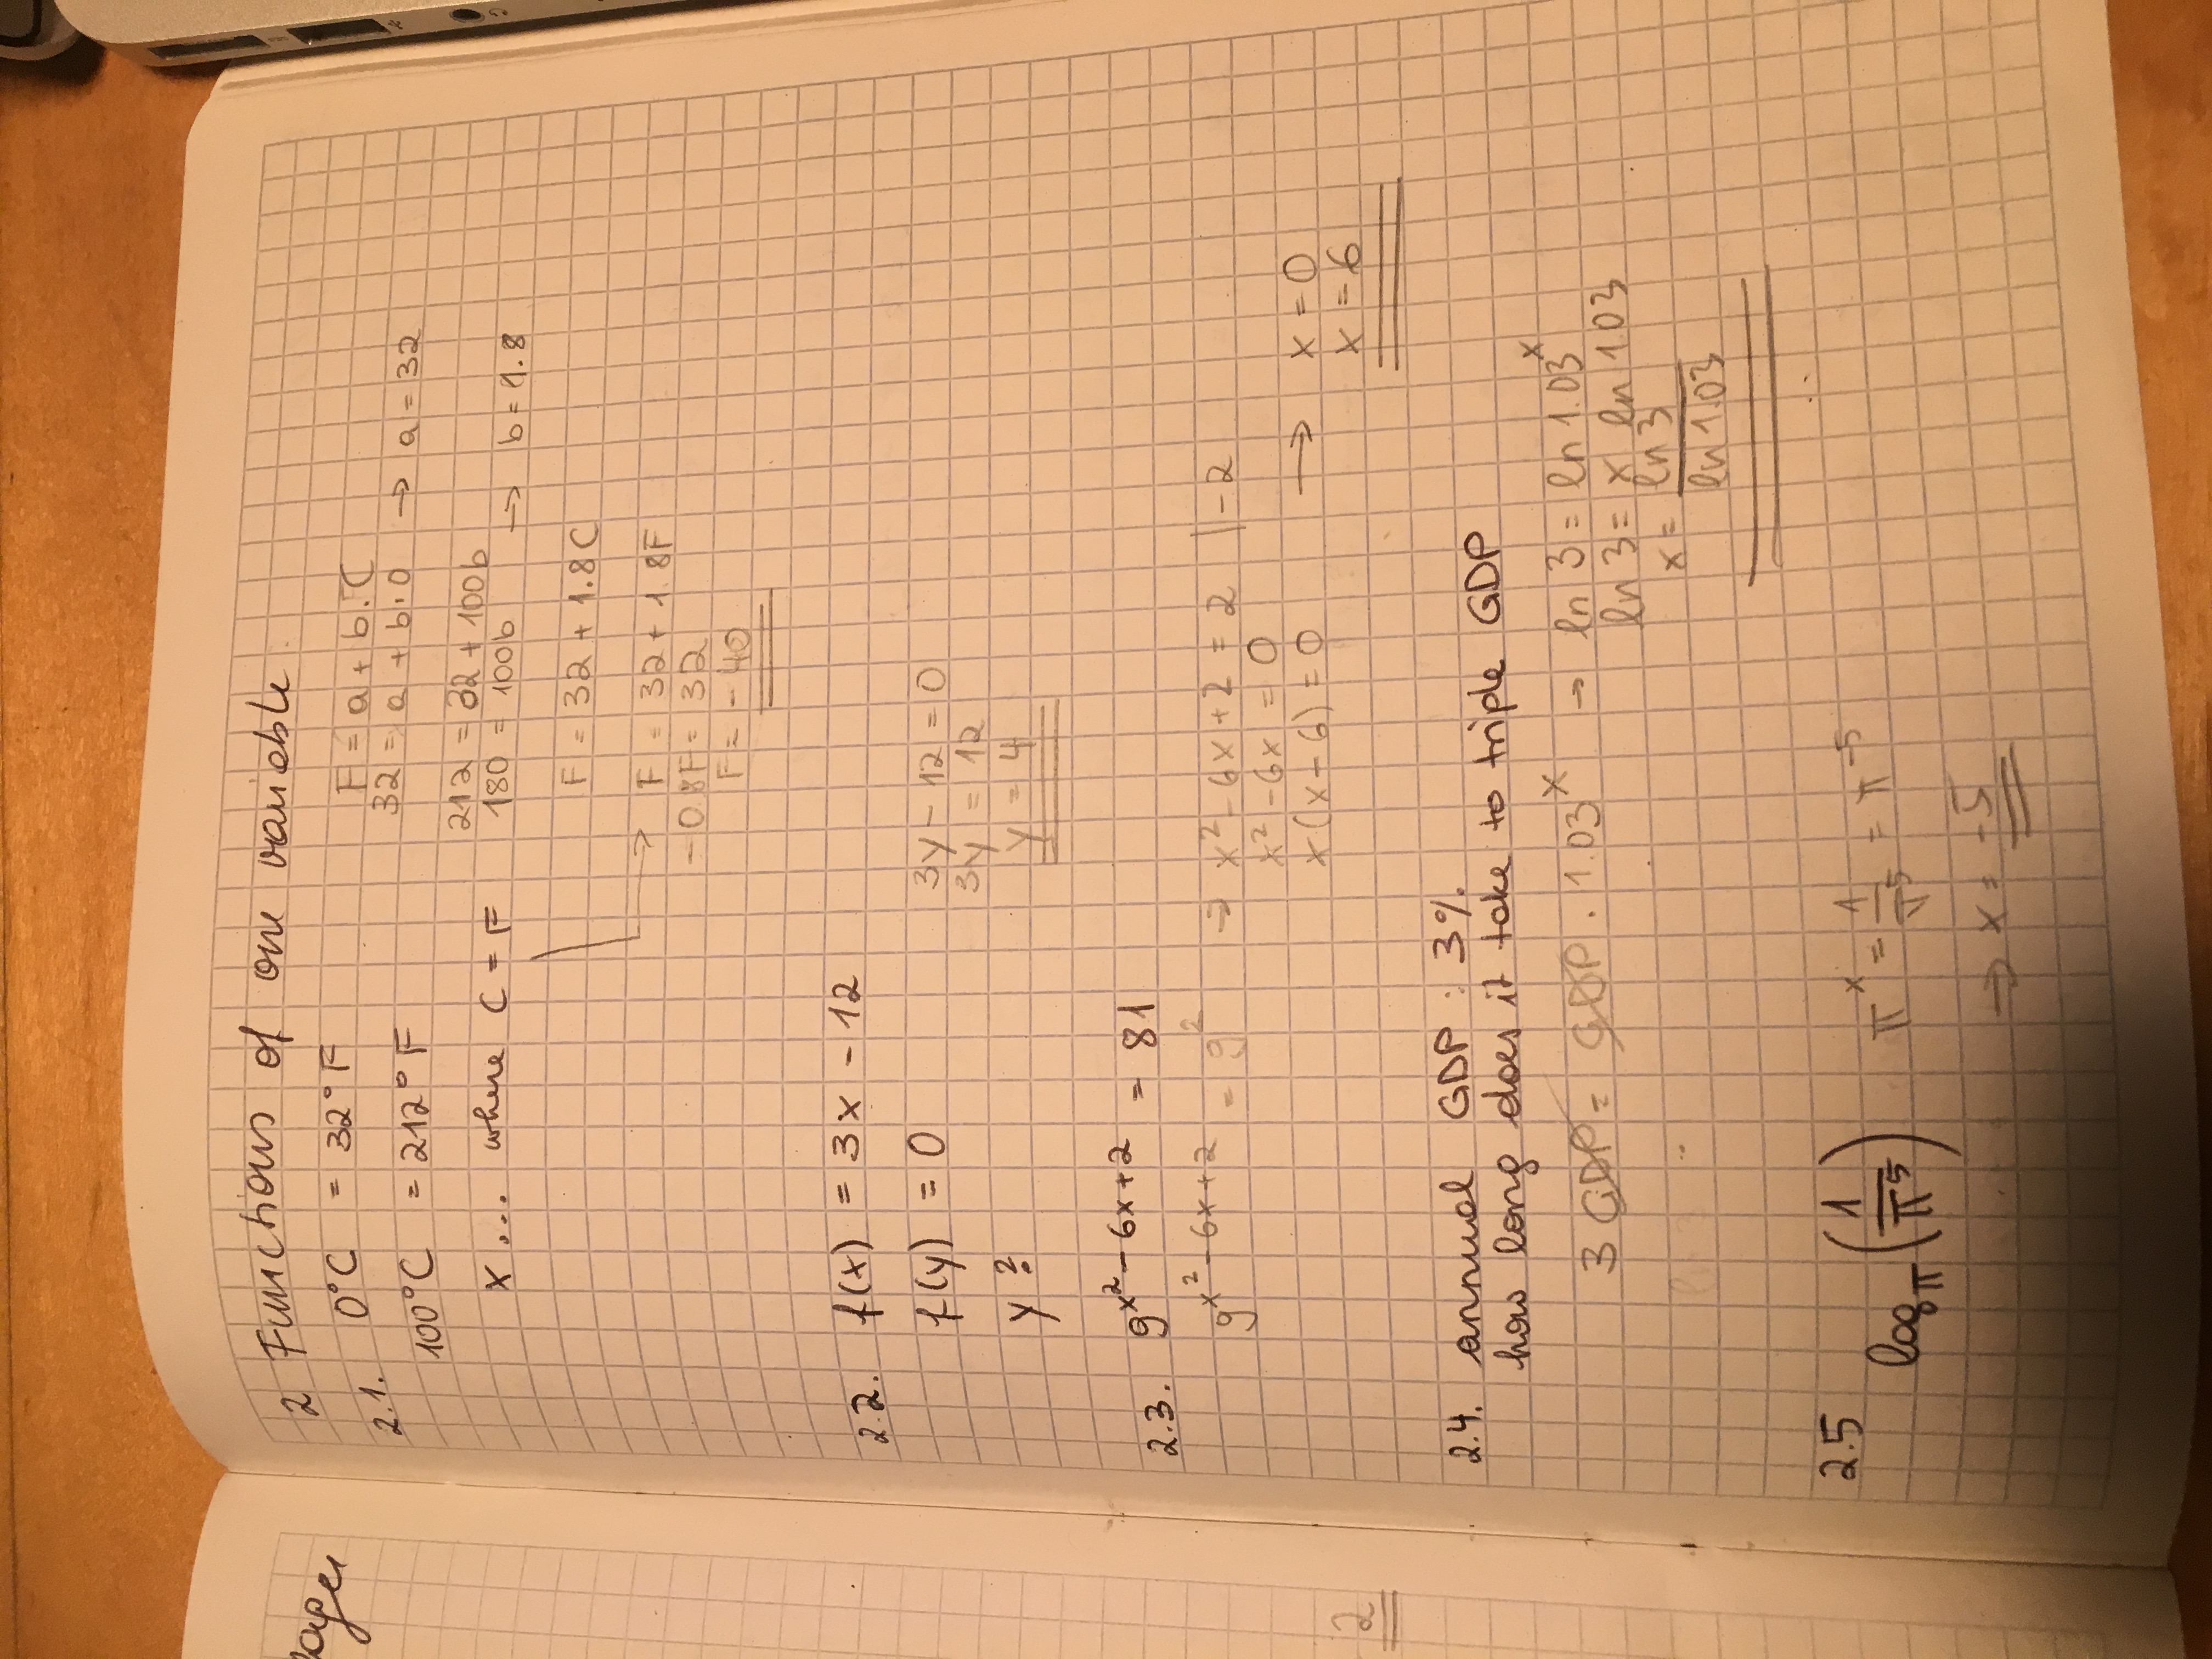 ages
2
2 Functions of one variable
2.1. 0°C = 32°F
100°C = 212°F
x ... where C = F
F = a + b.C
32 = a + b.0 → a = 32
212 = 32 + 100b
180 = 100b → b = 1.8
F = 32 + 1.8C
→ F = 32 + 1.8F
-0.8F = 32
F = -40
2.2. f(x) = 3x - 12
f(y) = 0
y ?
3y - 12 = 0
3y = 12
y = 4
2.3. 9^x² - 6x + 2 = 81
9^x² - 6x + 2 = 9² → x² - 6x + 2 = 2 | -2
x² - 6x = 0
x(x - 6) = 0 → x = 0
x = 6
2.4. annual GDP : 3%.
how long does it take to triple GDP
3 GDP = GDP . 1.03^x → ln 3 = ln 1.03^x
ln 3 = x ln 1.03
x = ln 3 / ln 1.03
2.5 log_π (1/π⁵) π^x = 1/π⁵ = π⁻⁵
→ x = -5